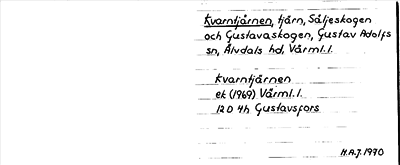 Kvarntjärnen, tjärn, Säljeskogen
och Gustavaskogen, Gustav Adolfs
sn, Älvdals hd, Värml.l.
Kvarntjärnen
ek (1969) Värml.l.
12D 4h Gustavsfors
H.A.J. 1970